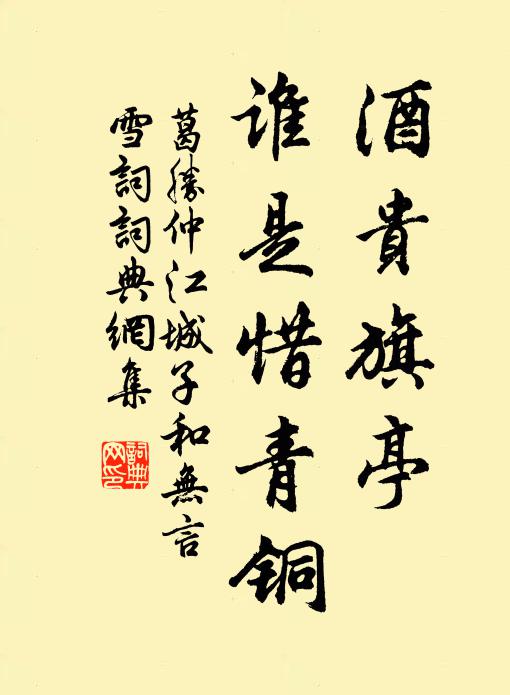 酒貴旗亭
谁是惜青铜
葛勝仲江城子和無言
雪詞詞典網集
詞典网印